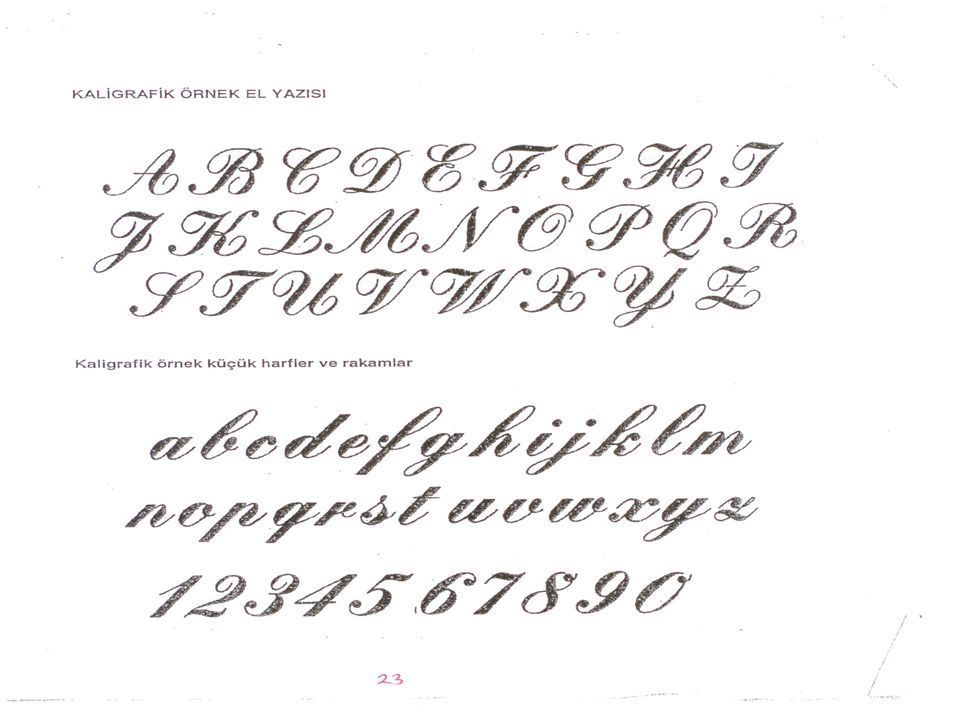 KALİGRAFİK ÖRNEK EL YAZISI
A B C D E F G H I
J K L M N O P Q R
S T U V W X Y Z
Kaligrafik örnek küçük harfler ve rakamlar
a b c d e f g h i j k l m
n o p q r s t u v w x y z
1 2 3 4 5 6 7 8 9 0
23